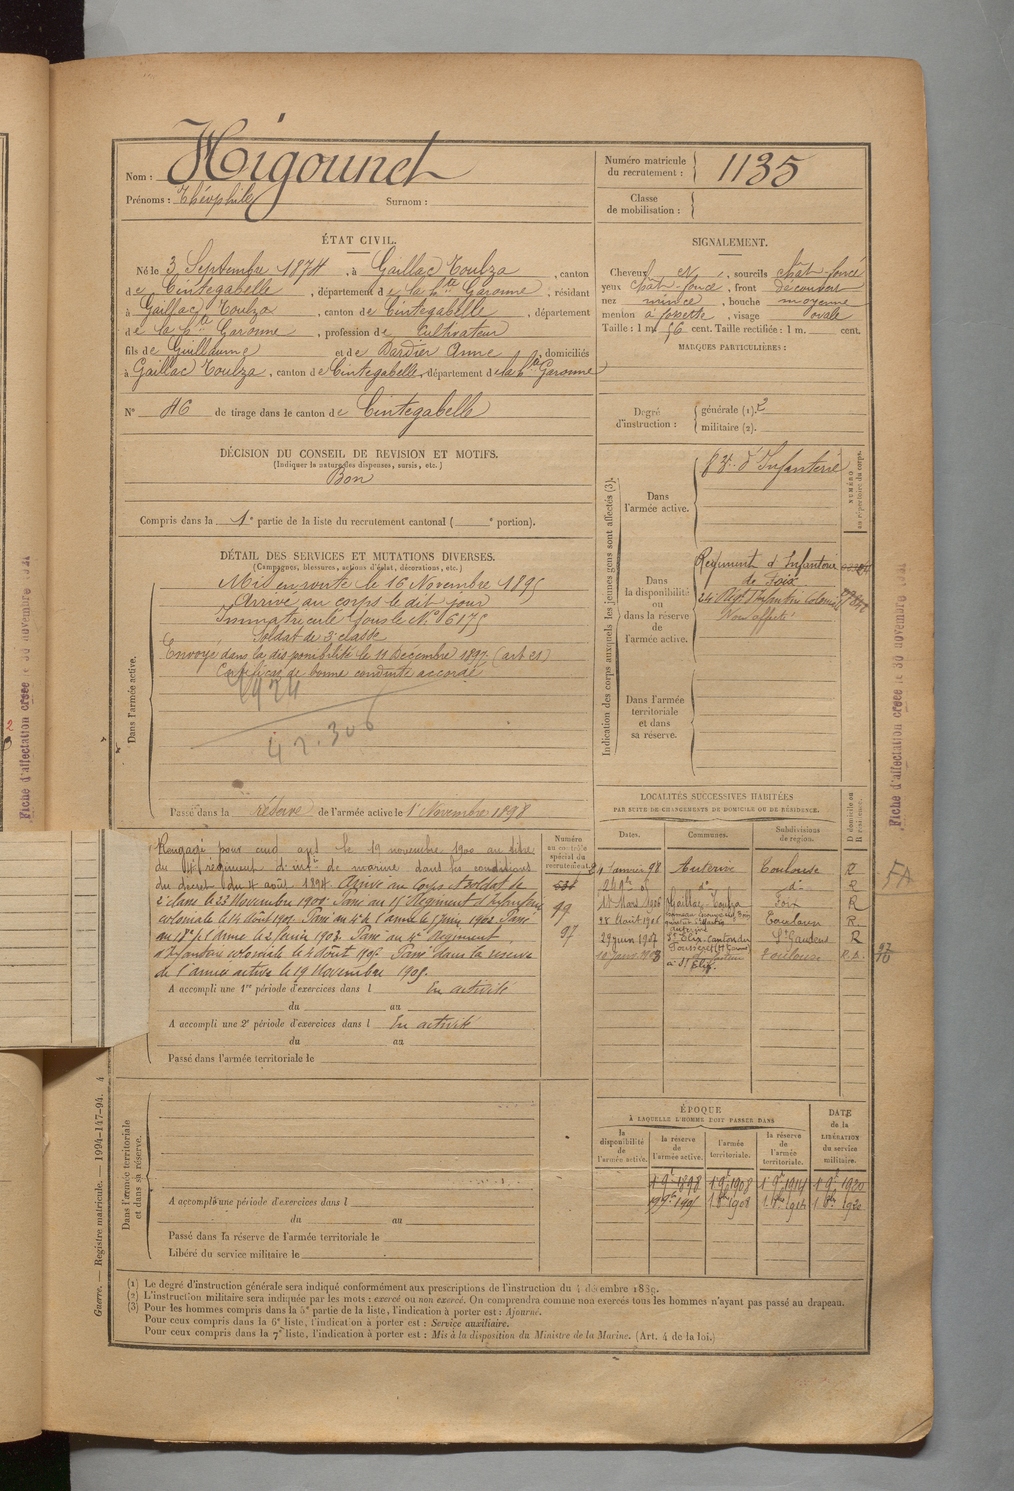 Nom : Higounet
Prénoms : Théophile Surnom :
Numéro matricule du recrutement : 1135
Classe de mobilisation :
ÉTAT CIVIL.
Né le 3 Septembre 1874, à Gaillac Toulza, canton
de Cintegabelle, département de la Hte Garonne, résidant
à Gaillac Toulza, canton de Cintegabelle, département
de la Hte Garonne, profession de Cultivateur
fils de Guillaume et de Dardier Anne, domiciliés
à Gaillac Toulza, canton de Cintegabelle, département de la Hte Garonne
N° 46 de tirage dans le canton de Cintegabelle
SIGNALEMENT.
Cheveux , sourcils chât-foncé
yeux chât-foncé, front découvert
nez mince, bouche moyenne
menton à fossette, visage ovale
Taille : 1 m. 56 cent. Taille rectifiée : 1 m. cent.
MARQUES PARTICULIÈRES :
Degré d'instruction : générale (1). 2
militaire (2).
DÉCISION DU CONSEIL DE REVISION ET MOTIFS.
(Indiquer la nature des dispenses, sursis, etc.)
Bon
Compris dans la 1e partie de la liste du recrutement cantonal ( e portion).
DÉTAIL DES SERVICES ET MUTATIONS DIVERSES.
(Campagnes, blessures, actions d'éclat, décorations, etc.)
Dans l'armée active.
Mis en route le 16 Novembre 1895
Arrivé au corps le dit jour
Immatriculé sous le N° 6175
Soldat de 2e classe
Envoyé dans la disponibilité le 11 Décembre 1897 (art 21)
Certificat de bonne conduite accordé
42.306
Passé dans la réserve de l'armée active le 1er Novembre 1898
Indication des corps auxquels les jeunes gens sont affectés (3).
NUMÉRO au répertoire du corps.
Dans l'armée active.
83e d'Infanterie
Dans la disponibilité ou dans la réserve de l'armée active.
Régiment d'Infanterie
de Foix
24 Régt d'Infanterie coloniale
Non affecté
Dans l'armée territoriale et dans sa réserve.
Rengagé pour cinq ans le 19 novembre 1900 au titre
du 4e régiment d'infie de marine dans les conditions
du décret du 4 août 1894 Arrivé au Corps et soldat de
2e classe le 23 Novembre 1900. Passé au Régiment d'Infanterie
coloniale le 14 Août 1901. Passé au 4e de l'arme le 1902. Passé
au 18e de l'arme le 2 1903. Passé au 4e Régiment
d'Infanterie coloniale le Août 1905. Passé dans la réserve
de l'armée active le 19 Novembre 1905.
Numéro au contrôle spécial du recrutement
99
97
A accompli une 1re période d'exercices dans l En activité
du au
A accompli une 2e période d'exercices dans l En activité
du au
Passé dans l'armée territoriale le
LOCALITÉS SUCCESSIVES HABITÉES
PAR SUITE DE CHANGEMENTS DE DOMICILE OU DE RÉSIDENCE.
Dates. Communes. Subdivisions de région. D domicile ou R résidence.
janvier 98 Auterive Toulouse R
do do R
Mars 1906 Gaillac-Toulza Foix R
28 Août 1906 Toulouse R.
29 juin 1907 St Elix-Canton du Fousseret (Hte Garonne) St Gaudens R
à St Elix. Toulouse
FA
Dans l'armée territoriale et dans sa réserve.
A accompli une période d'exercices dans l
du au
Passé dans la réserve de l'armée territoriale le
Libéré du service militaire le
ÉPOQUE
À LAQUELLE L'HOMME DOIT PASSER DANS
la disponibilité de l'armée active. la réserve de l'armée active. l'armée territoriale. la réserve de l'armée territoriale. DATE de la LIBÉRATION du service militaire.
1 9bre 1898 1 9bre 1908 1 9bre 1914 1 9bre 1920
(1) Le degré d'instruction générale sera indiqué conformément aux prescriptions de l'instruction du 4 décembre 1889.
(2) L'instruction militaire sera indiquée par les mots : exercé ou non exercé. On comprendra comme non exercés tous les hommes n'ayant pas passé au drapeau.
(3) Pour les hommes compris dans la 5e partie de la liste, l'indication à porter est : Ajourné.
Pour ceux compris dans la 6e liste, l'indication à porter est : Service auxiliaire.
Pour ceux compris dans la 7e liste, l'indication à porter est : Mis à la disposition du Ministre de la Marine. (Art. 4 de la loi.)
Guerre. — Registre matricule. — 1994-147-94. 4
Fiche d'affectation créée le 30 novembre 1921
Fiche d'affectation créée le 30 novembre 1921